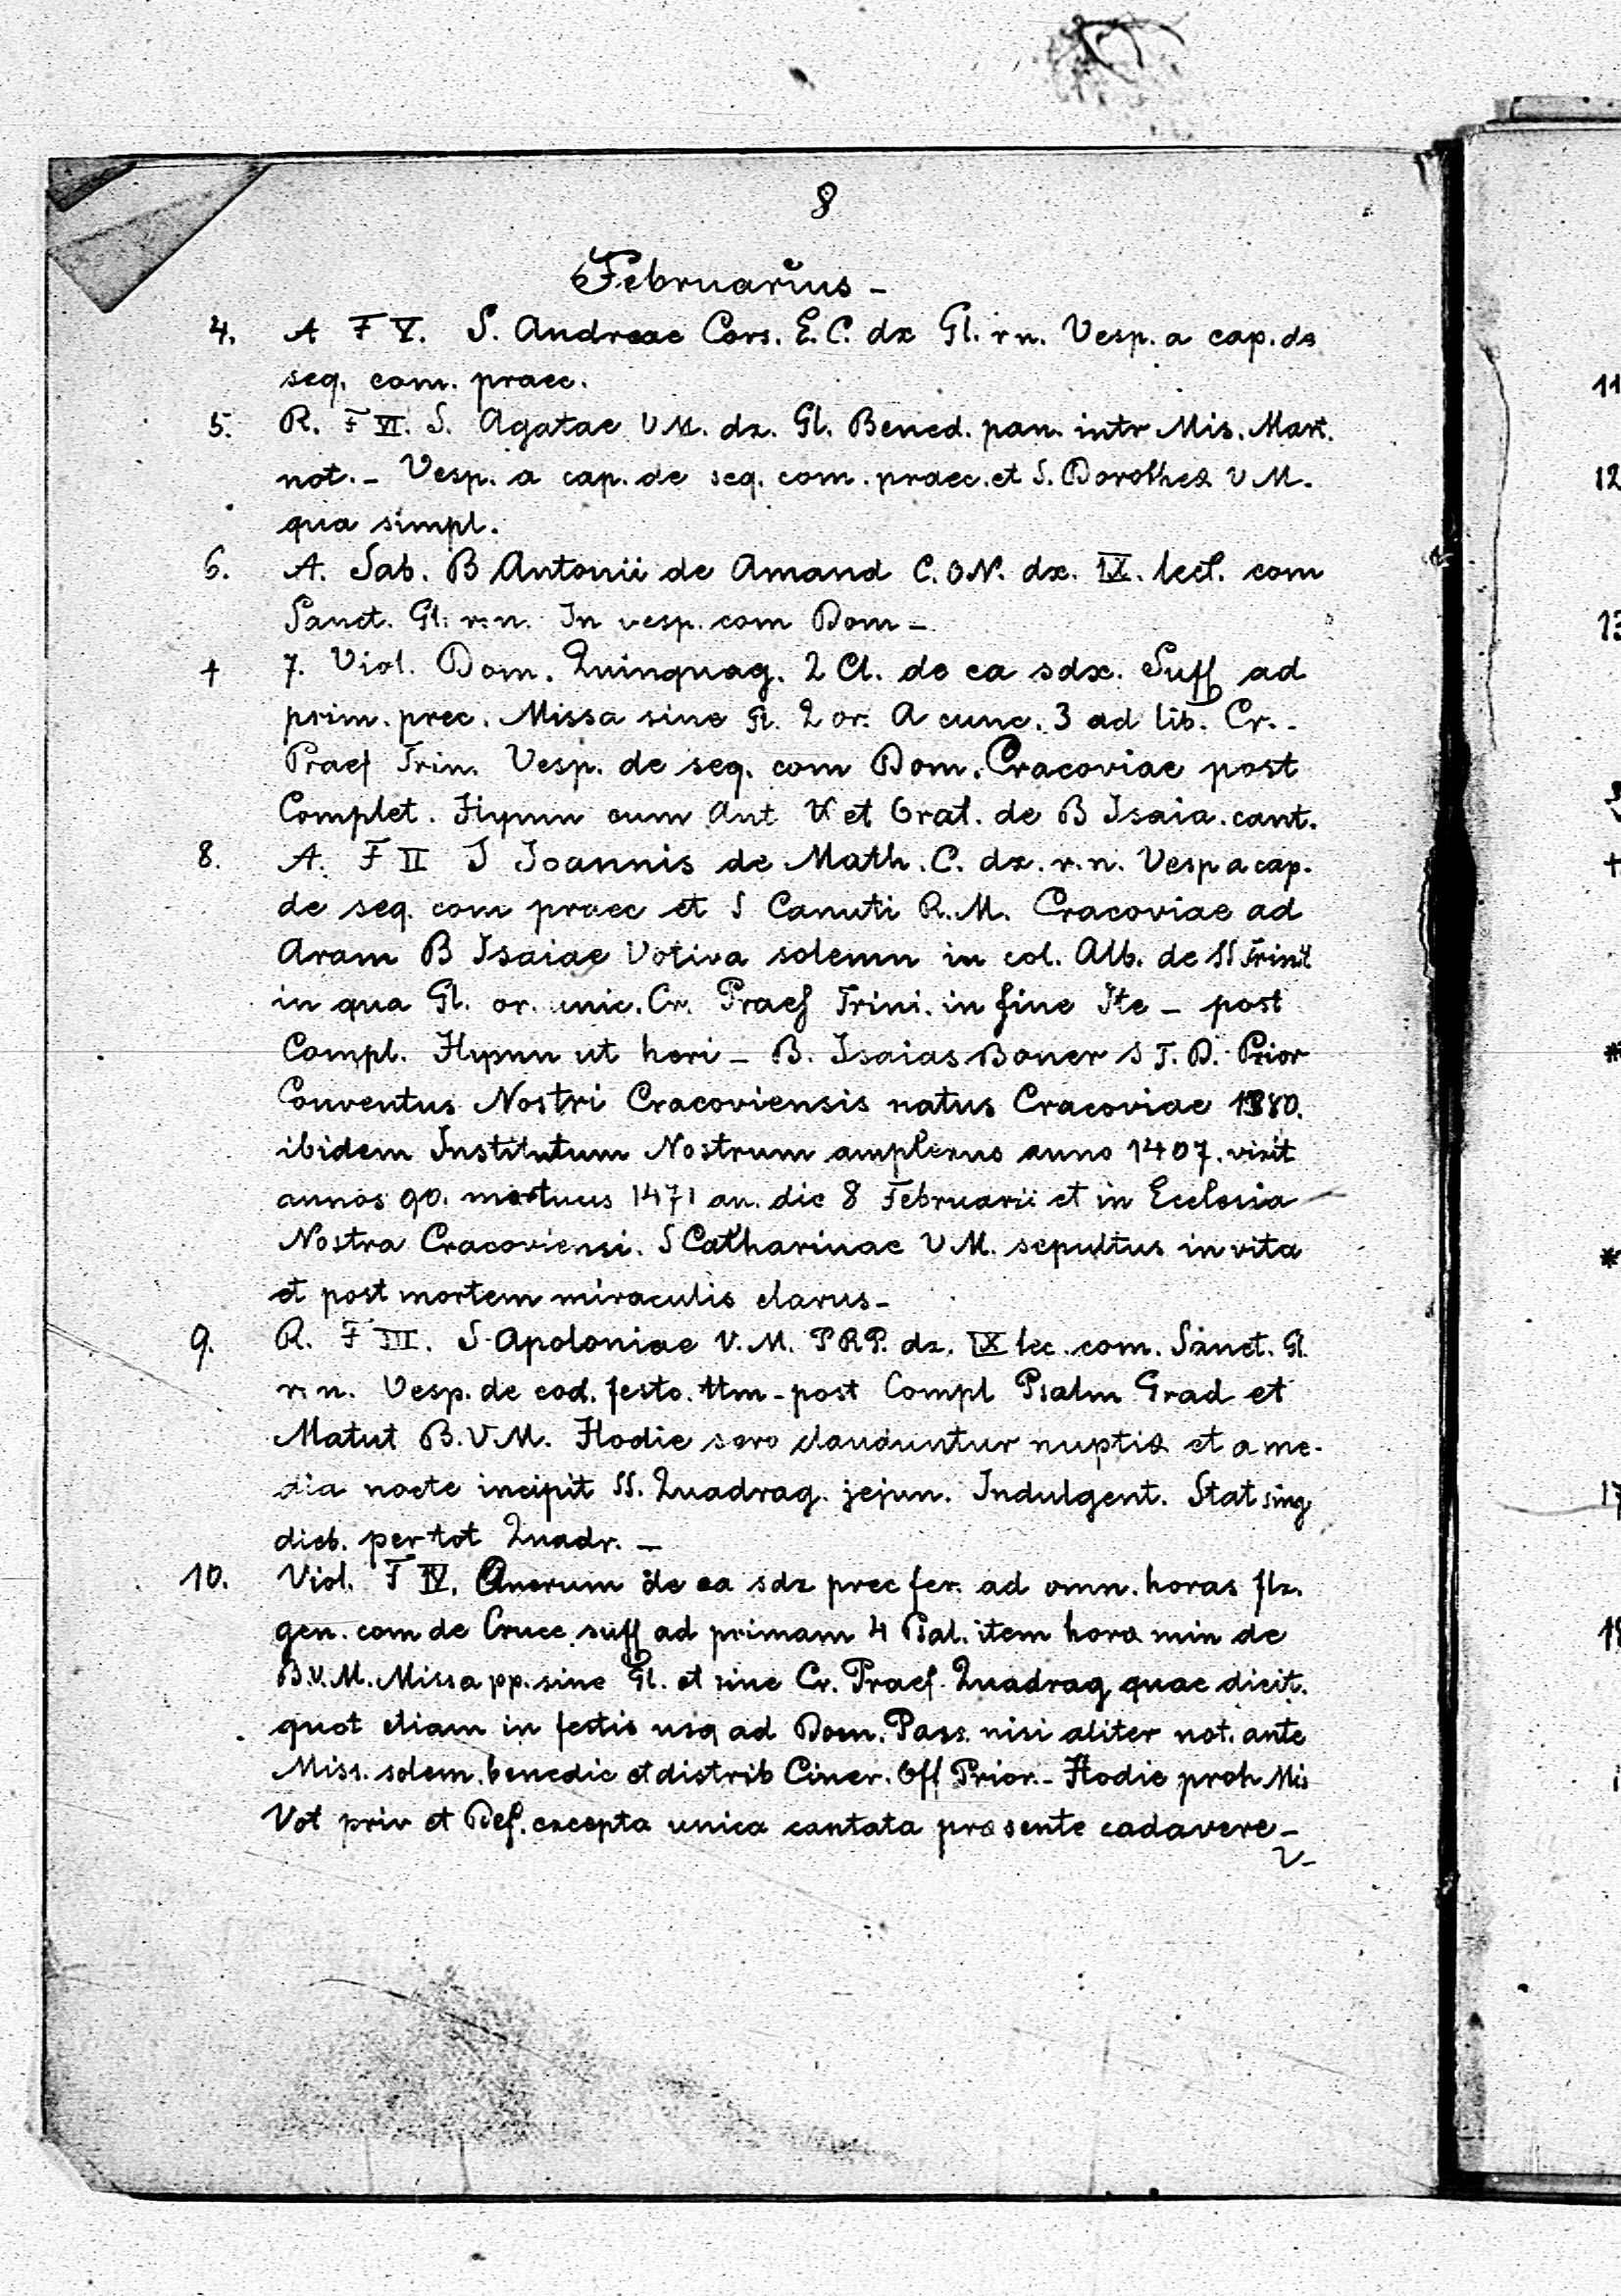 8
Februarius -
4. A F V. S. Andreae Cors. E. C. dx Gl. r n. Vesp. a cap. de
seq. com. praec.
5. R. F VI. S. Agatae V M. dx. Gl. Bened. pan. intr Mis. Mart.
not. - Vesp. a cap. de seq. com. praec. et S. Dorotheæ V M.
qua simpl.
6. A. Sab. B Antonii de Amand C. O N. dx. IX. lect. com
Sanct. Gl. r. n. In vesp. com Dom -
+ 7. Viol. Dom. Quinquag. 2 Cl. de ea sdx. Suff ad
prim. prec. Missa sine Gl. 2 or. A cunc. 3 ad lib. Cr. -
Praef Trin. Vesp. de seq. com Dom. Cracoviae post
Complet. Hymn cum Ant V et Orat. de B Isaia. cant.
8. A. F II S Joannis de Math. C. dx. r. n. Vesp a cap.
de seq. com praec et S Canuti R. M. Cracoviae ad
Aram B Isaiae Votiva solemn in col. Alb. de SS Trinit
in qua Gl. or. unic. Cr. Praef Trini. in fine Ite - post
Compl. Hymn ut heri - B. Isaias Boner S T. D. Prior
Conventus Nostri Cracoviensis natus Cracoviae 1380.
ibidem Institutum Nostrum amplexus anno 1407. vixit
annos 90. mortuus 1471 an. die 8 Februarii et in Ecclesia
Nostra Cracoviensi. S Catharinae V M. sepultus in vita
et post mortem miraculis clarus -
9. R. F III. S. Apoloniae V. M. P R P. dx. IX lec. com. Sanct. Gl.
r. n. Vesp. de eod. festo. ttm - post Compl Psalm Grad et
Matut B. V M. Hodie sero clauduntur nuptiæ et a me-
dia nocte incipit SS. Quadrag. jejun. Indulgent. Stat sing
dieb. per tot Quadr. -
10. Viol. F IV. Cinerum de ea sdx prec fer. ad omn. horas flx.
gen. com de Cruce suff ad primam 4 Psal. item hora min de
B. V. M. Missa pp. sine Gl. et sine Cr. Praef. Quadrag quae dicit.
quot etiam in festis usq ad Dom. Pass. nisi aliter not. ante
Miss. solem. benedic et distrib Ciner. Off Prior. - Hodie proh Mis
Vot priv et Def. excepta unica cantata præsente cadavere -
V-
11
12
13
+
*
*
17
18